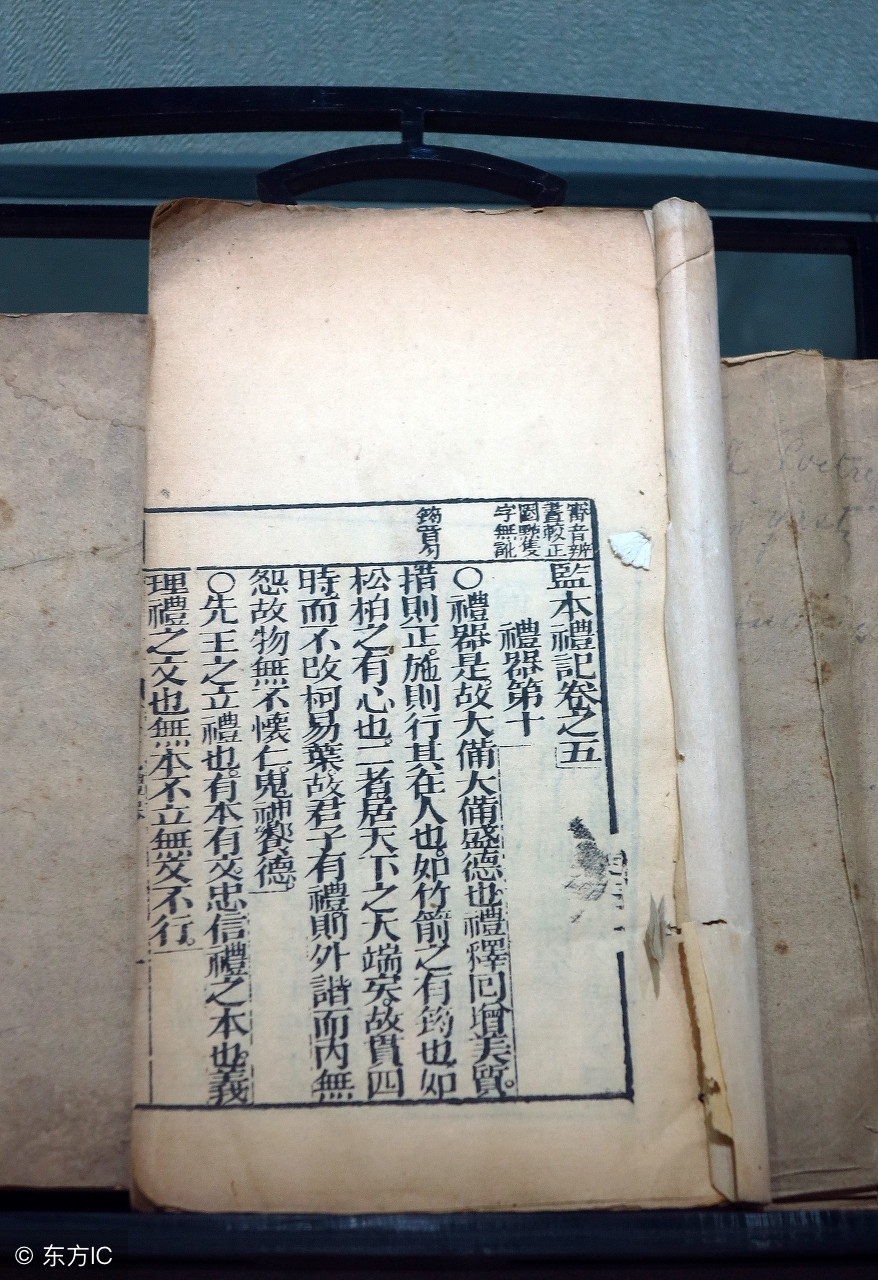 審音辨
畫較正
圈點隻
字無訛
監本禮記卷之五
禮器第十
〇禮器是故大備大備盛德也禮釋回增美質。
筠勻
措則正。施則行其在人也。如竹箭之有筠也如
松柏之有心也。二者居天下之大端矣。故貫四
時而不改柯易葉。故君子有禮則外諧而內無
怨故物無不懷仁。鬼神饗德。
〇先王之立禮也。有本有文。忠信禮之本也。義
理禮之文也無本不立無文不行。
© 东方IC